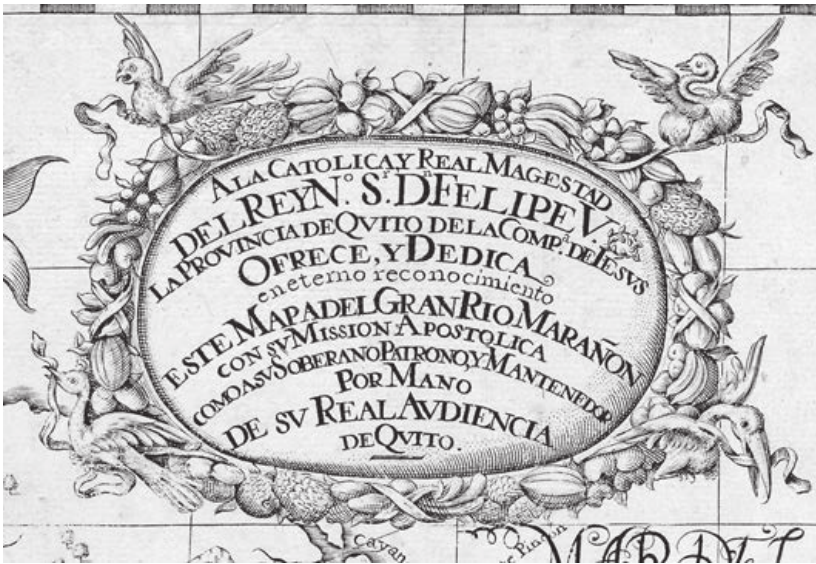 A LA CATOLICA Y REAL MAGESTAD
DEL REY N.º S.r Dn FELIPE V.
LA PROVINCIA DE QVITO DE LA COMP.ª DE IESVS
OFRECE, Y DEDICA
en eterno reconocimiento
ESTE MAPA DEL GRAN RIO MARAÑON
CON SV MISSION APOSTOLICA
COMO A SV SOBERANO PATRONO, Y MANTENEDOR
POR MANO
DE SV REAL AVDIENCIA
DE QVITO.
Cayan
de Pinçon
MAR DEL